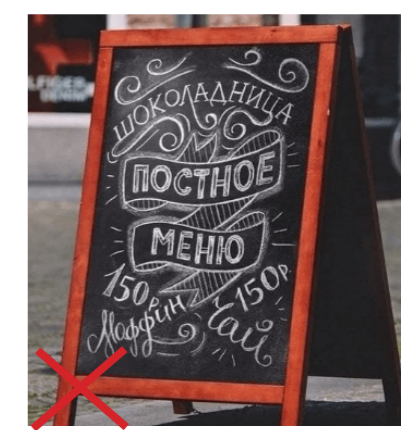 ШОКОЛАДНИЦА
ПОСТНОЕ
МЕНЮ
150р.
Маффин
150р.
Чай